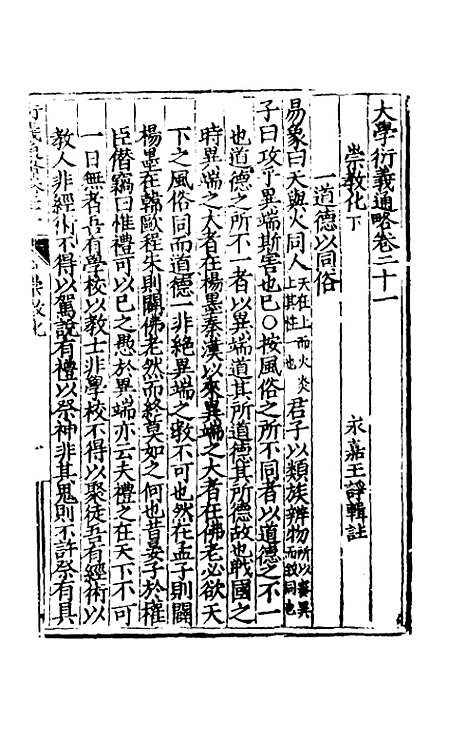 大學衍義通略卷二十一
崇教化下
永嘉王諍輯註
一道德以同俗
易象曰天與火同人天在上而火炎上其性一也君子以類族辨物所以審異而致同也
子曰攻乎異端斯害也已○按風俗之所不同者以道德之不一
也道德之所不一者以異端道其所道德其所德故也戰國之
時異端之大者在楊墨秦漢以來異端之大者在佛老必欲天
下之風俗同而道德一非絕異端之教不可也然在孟子則闢
楊墨在韓歐程朱則闢佛老然而終莫如之何也昔晏子於權
臣僭竊曰惟禮可以已之愚於異端亦云夫禮之在天下不可
一日無者吾有學校以教士非學校不得以聚徒吾有經術以
教人非經術不得以駕說有禮以祭神非其鬼則不許祭有具
崇教化